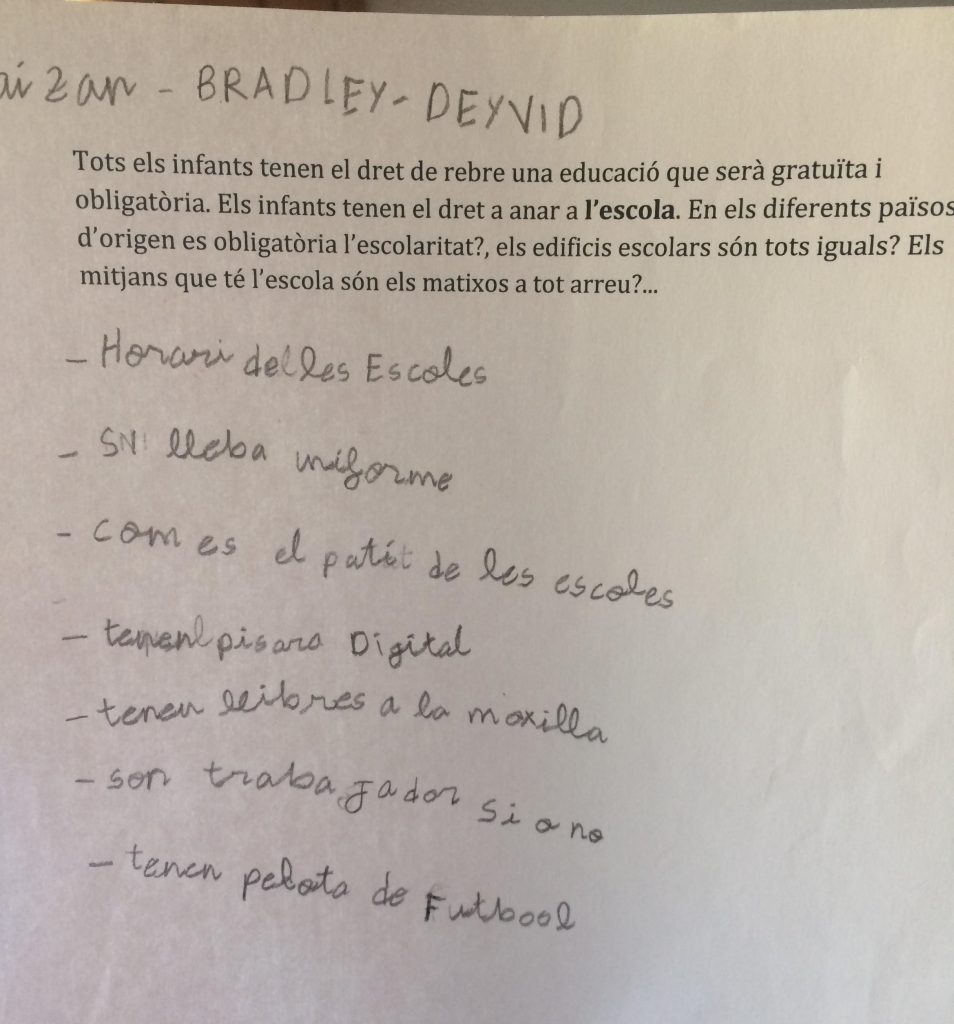 aizan - BRADLEY - DEYVID
Tots els infants tenen el dret de rebre una educació que serà gratuïta i
obligatòria. Els infants tenen el dret a anar a l'escola. En els diferents països
d'origen es obligatòria l'escolaritat?, els edificis escolars són tots iguals? Els
mitjans que té l'escola són els matixos a tot arreu?...
- Horari delles Escoles
- lleba uniforme
- com es el patit de les escoles
- pisara Digital
- tenen llibres a la moxilla
- son trabajador si o no
- tenen pelota de Futbool